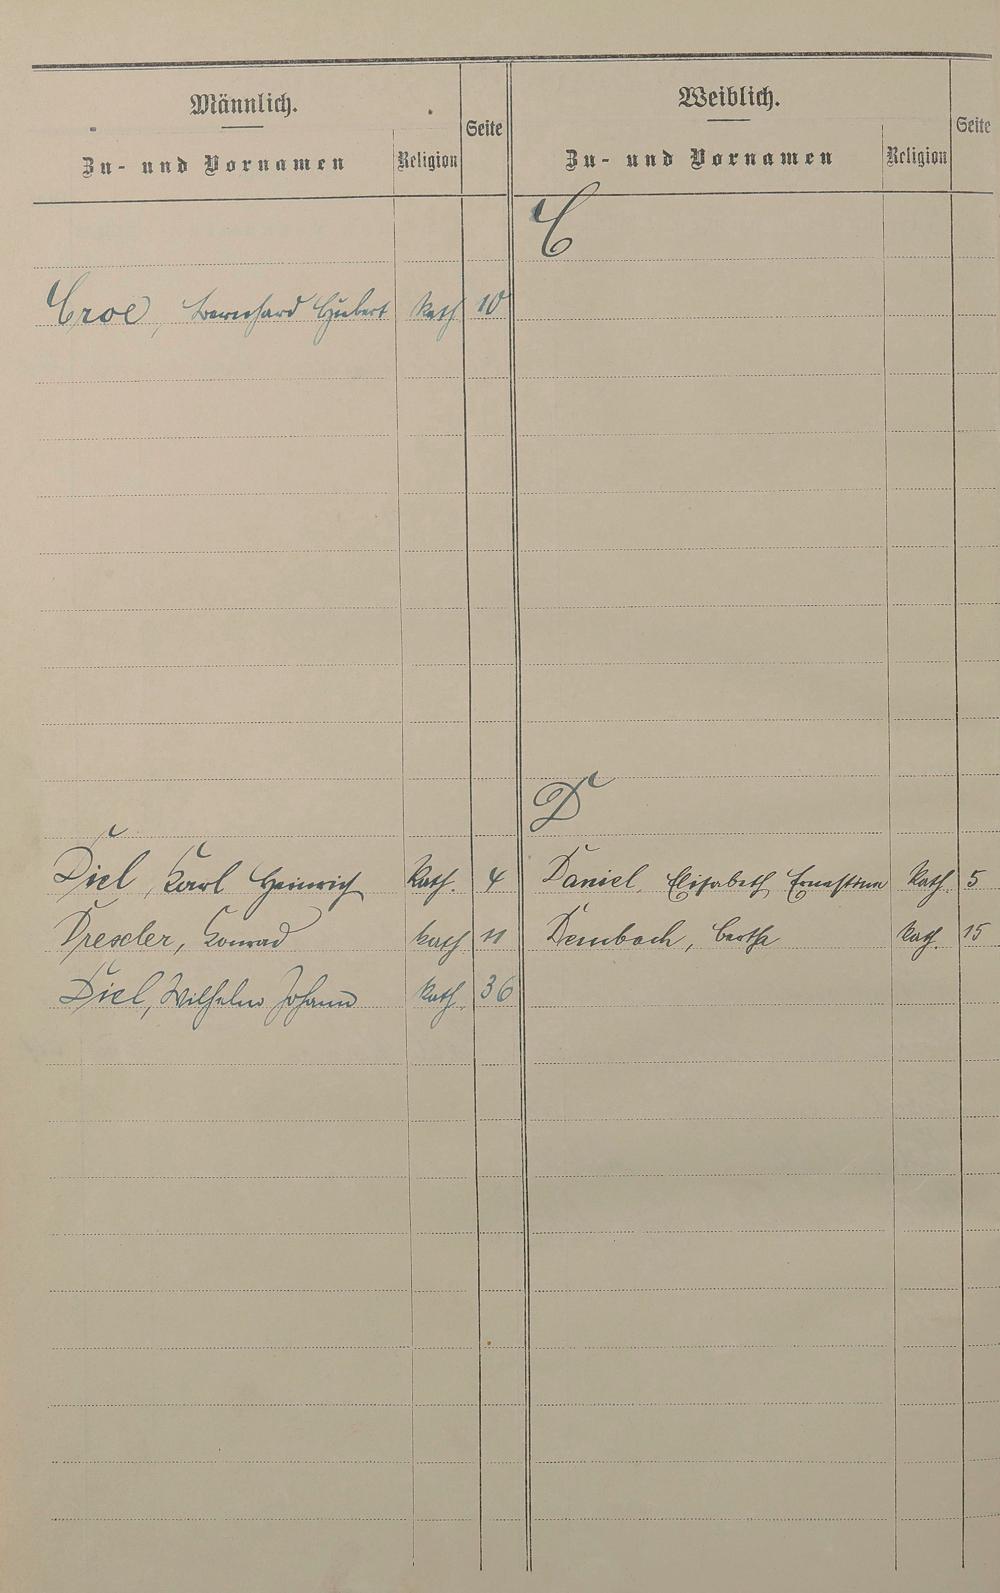 Männlich.
Zu- und Vornamen
Religion
Seite
Weiblich.
Zu- und Vornamen
Religion
Seite
C
Croe, Bernhard Hubert Kath 10
D
Diel, Karl Heinrich Kath. 4
Daniel, Elisabeth Ernestine Kath. 5
Drescler, Konrad Kath 11
Dembach, Bertha Kath. 15
Diel, Wilhelm Johann Kath. 36